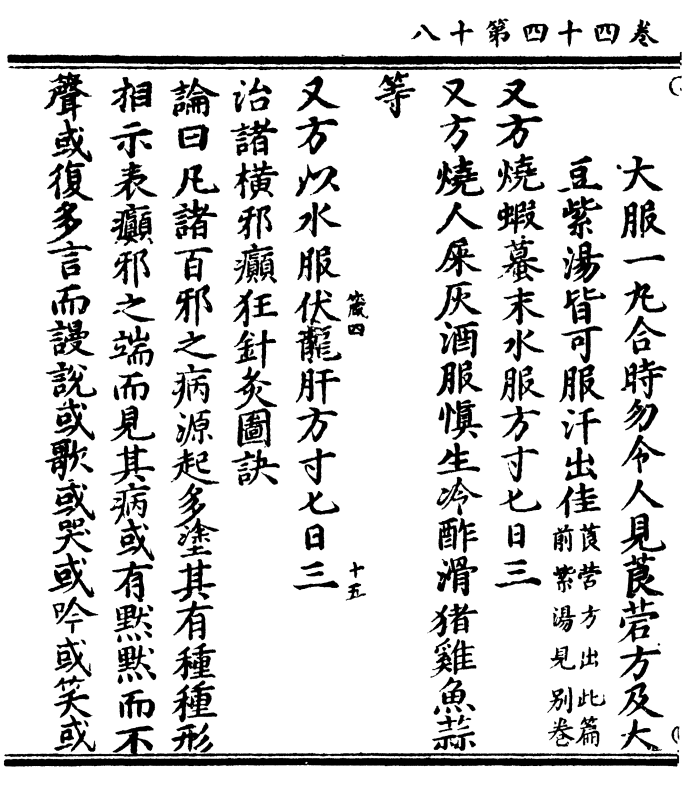 卷四十四第十八
大服一丸合時勿令人見莨菪方及大
豆紫湯皆可服汗出佳莨菪方出此篇前紫湯見别卷
又方燒蝦蟇末水服方寸七日三
又方燒人屎灰酒服慎生冷酢滑猪雞魚蒜
等
又方以水服伏龍肝方寸七日三
歲四
十五
治諸横邪癲狂針灸圖訣
論曰凡諸百邪之病源起多塗其有種種形
相示表癲邪之端而見其病或有默默而不
聲或復多言而謾說或歌或哭或吟或笑或